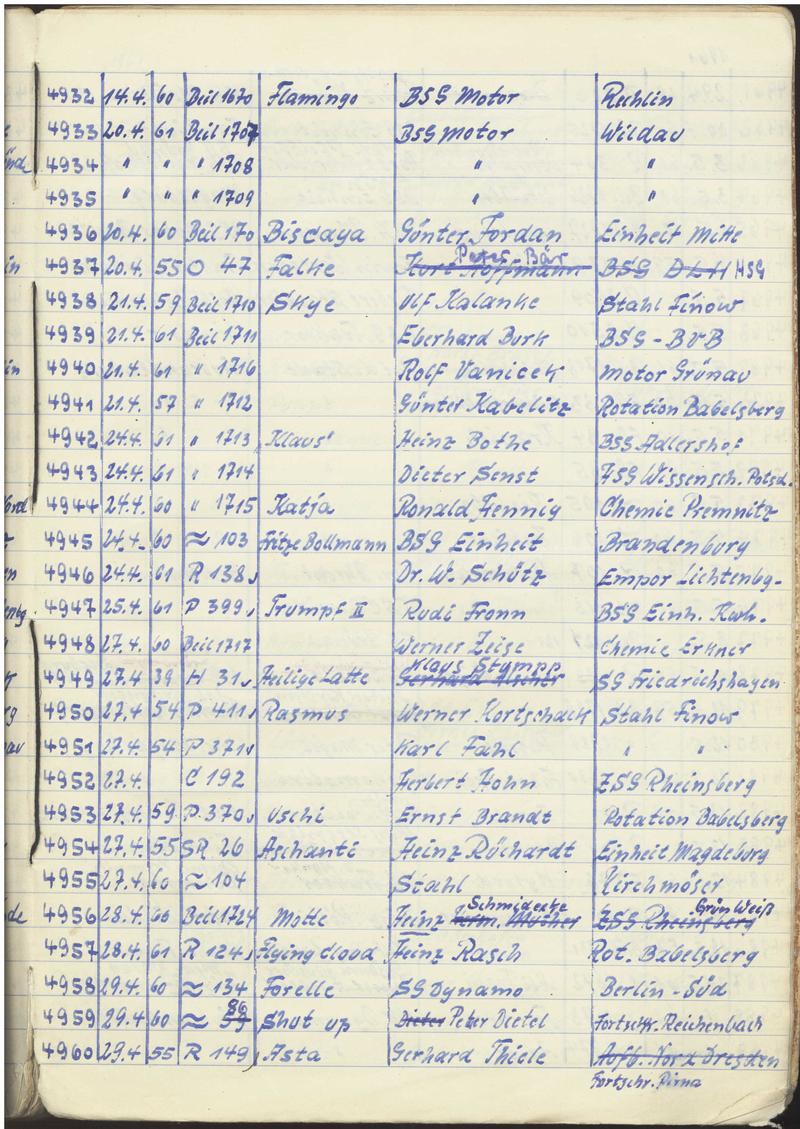 4932 14.4. 60 Beil 1670 Flamingo BSG Motor Rechlin
4933 20.4. 61 Beil 1707 BSG Motor Wildau
4934 " " " 1708 " "
4935 " " " 1709 " "
4936 20.4. 60 Beil 170 Biscaya Günter Jordan Einheit Mitte
Peter Bär
4937 20.4. 55 O 47 Falke Kurt Hoffmann BSG DLH HSG
4938 21.4. 59 Beil 1710 Skye Ulf Kalanke Stahl Finow
4939 21.4. 61 Beil 1711 Eberhard Burk BSG - BVB
4940 21.4. 61 " 1716 Rolf Vanicek Motor Grünau
4941 21.4. 57 " 1712 Günter Kabelitz Rotation Babelsberg
4942 24.4. 61 " 1713 "Klaus" Heinz Bothe BSG Adlershof
4943 24.4. 61 " 1714 Dieter Senst HSG Wissensch. Potsd.
4944 24.4. 60 " 1715 Katja Ronald Hennig Chemie Premnitz
4945 24.4. 60 ≈ 103 Fritze Bollmann BSG Einheit Brandenburg
4946 24.4. 61 R 138 Dr. W. Schütz Empor Lichtenbg.
4947 25.4. 61 P 399 Trumpf II Rudi Fronn BSG Einh. Kwh.
4948 27.4. 60 Beil 1717 Werner Zeise Chemie Erkner
Klaus Stumpp
4949 27.4 39 H 31 Heilige Latte Gerhard SG Friedrichshagen
4950 27.4 54 P 411 Rasmus Werner Kortschack Stahl Finow
4951 27.4. 54 P 371 Karl Fahl " "
4952 27.4. C 192 Herbert Hohn ZSG Rheinsberg
4953 27.4. 59 P 370 Uschi Ernst Brandt Rotation Babelsberg
4954 27.4. 55 SR 26 Aschanti Heinz Rüchardt Einheit Magdeburg
4955 27.4. 60 ≈ 104 Stahl Kirchmöser
Schmidecke Grün Weiß
4956 28.4. 60 Beil 1724 Motte Heinz ZSG Rheinsberg
4957 28.4. 61 R 124 Flying cloud Heinz Rasch Rot. Babelsberg
4958 29.4. 60 ≈ 134 Forelle SG Dynamo Berlin-Süd
86
4959 29.4 60 ≈ Shut up Dieter Peter Dietel Fortschr. Reichenbach
4960 29.4 55 R 149 Asta Gerhard Thiele Aufb. Nord Dresden
Fortschr. Pirna